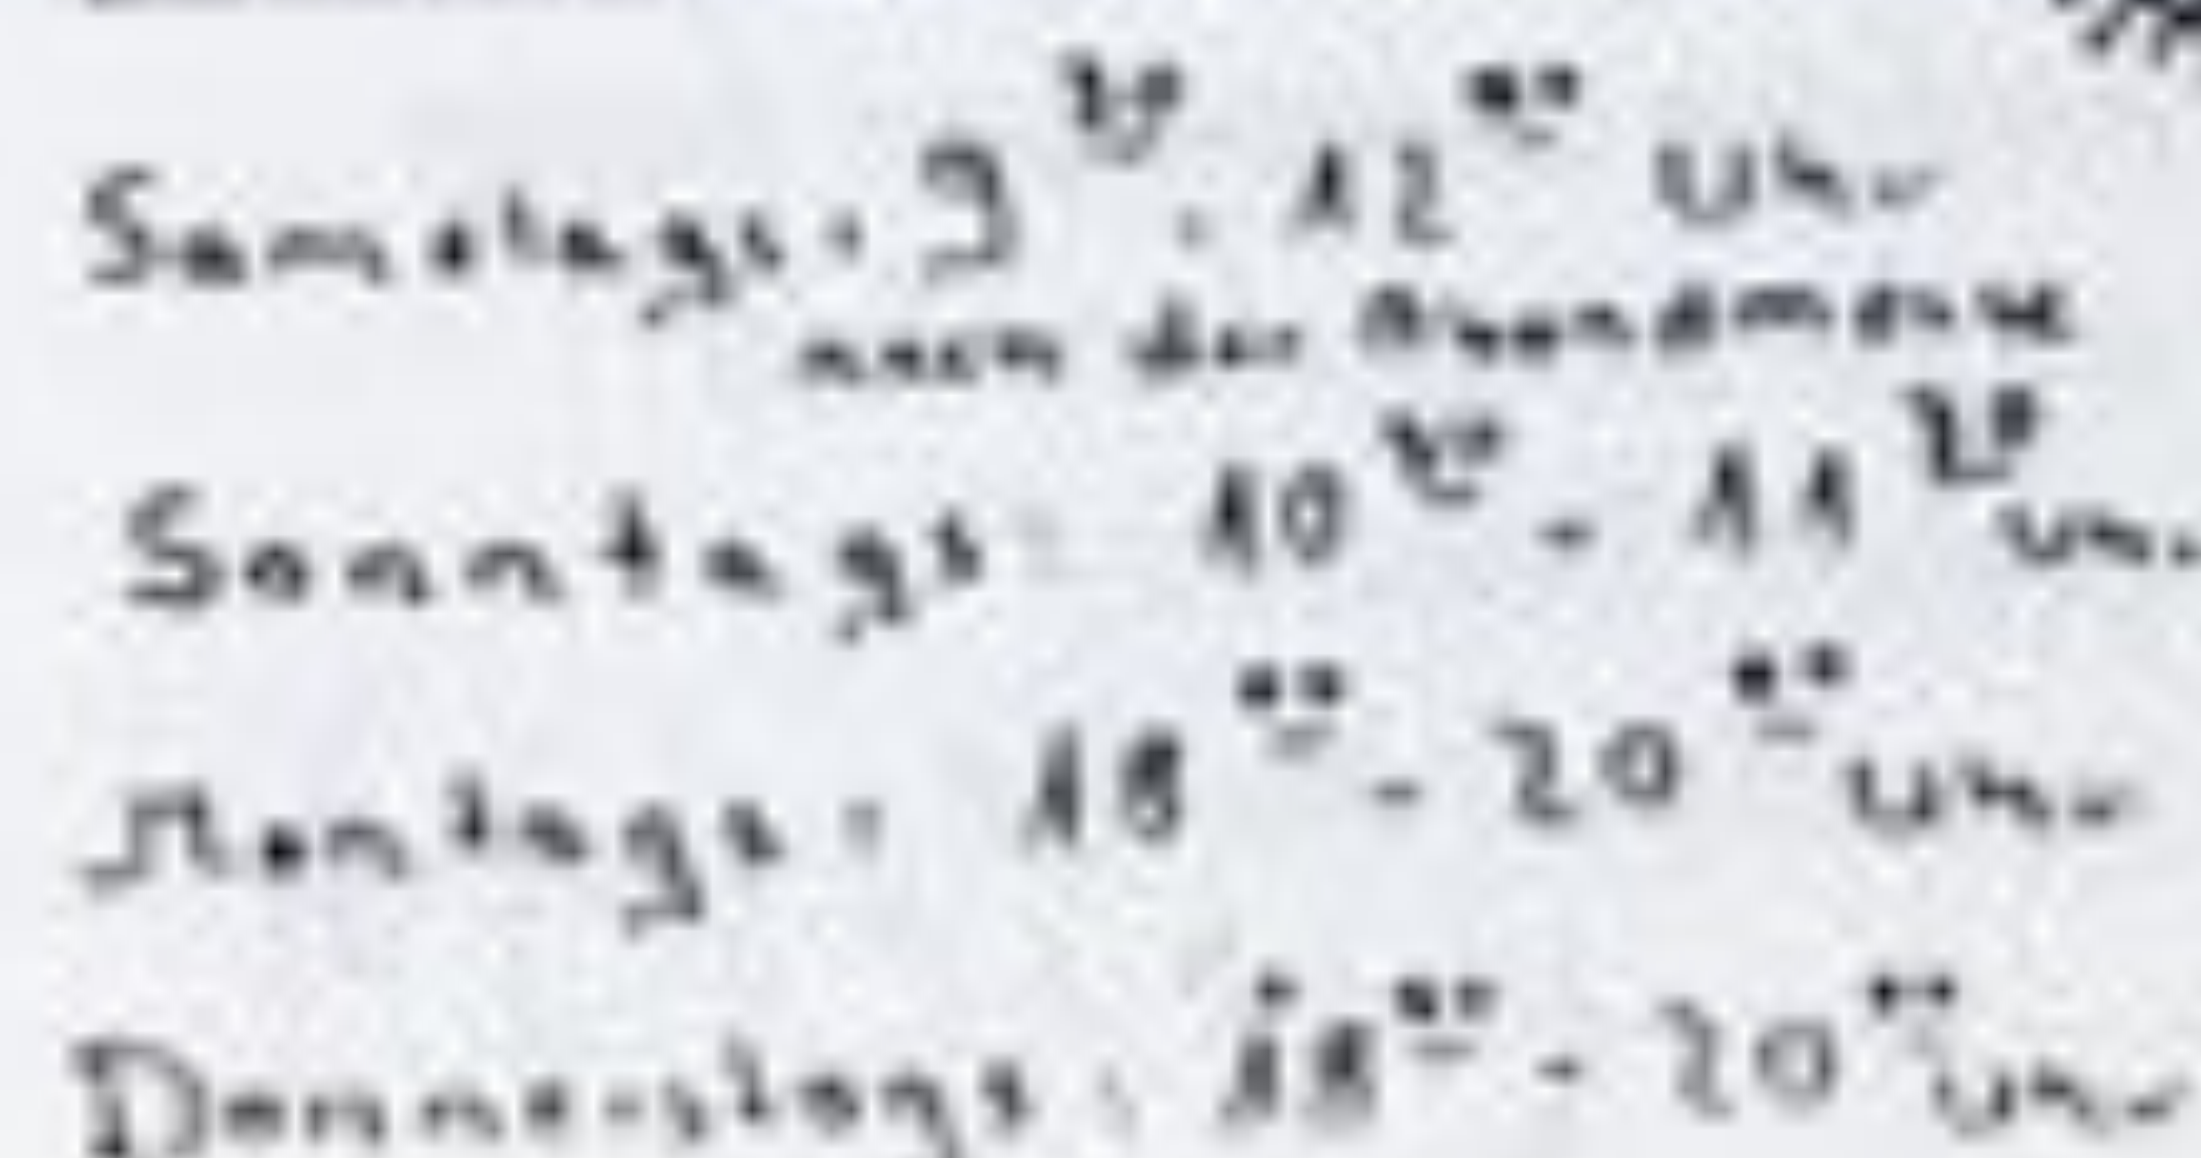 Samstags: 9³⁰ - 12⁰⁰ Uhr
nach der Abendmesse
Sonntags 10³⁰ - 11³⁰ Uhr
Montags: 18⁰⁰ - 20⁰⁰ Uhr
Donnerstags: 18⁰⁰ - 20⁰⁰ Uhr